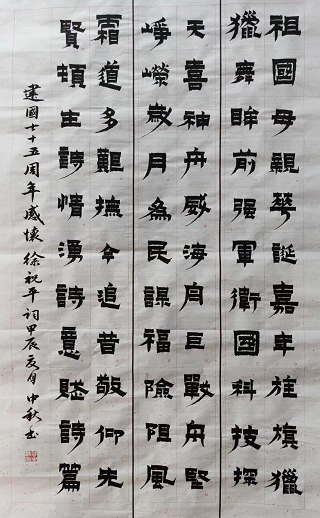 祖國母親華誕嘉年旌旗獵
獵舞眸前强軍衛國科技探
天喜神舟威海舟巨艱舟堅
崢嶸歲月為民謀福險阻風
霜道多艱撫今追昔敬仰先
賢頓生詩情湧詩意賦詩篇
建國七十五周年感懷徐祝平詞甲辰夏月中秋书